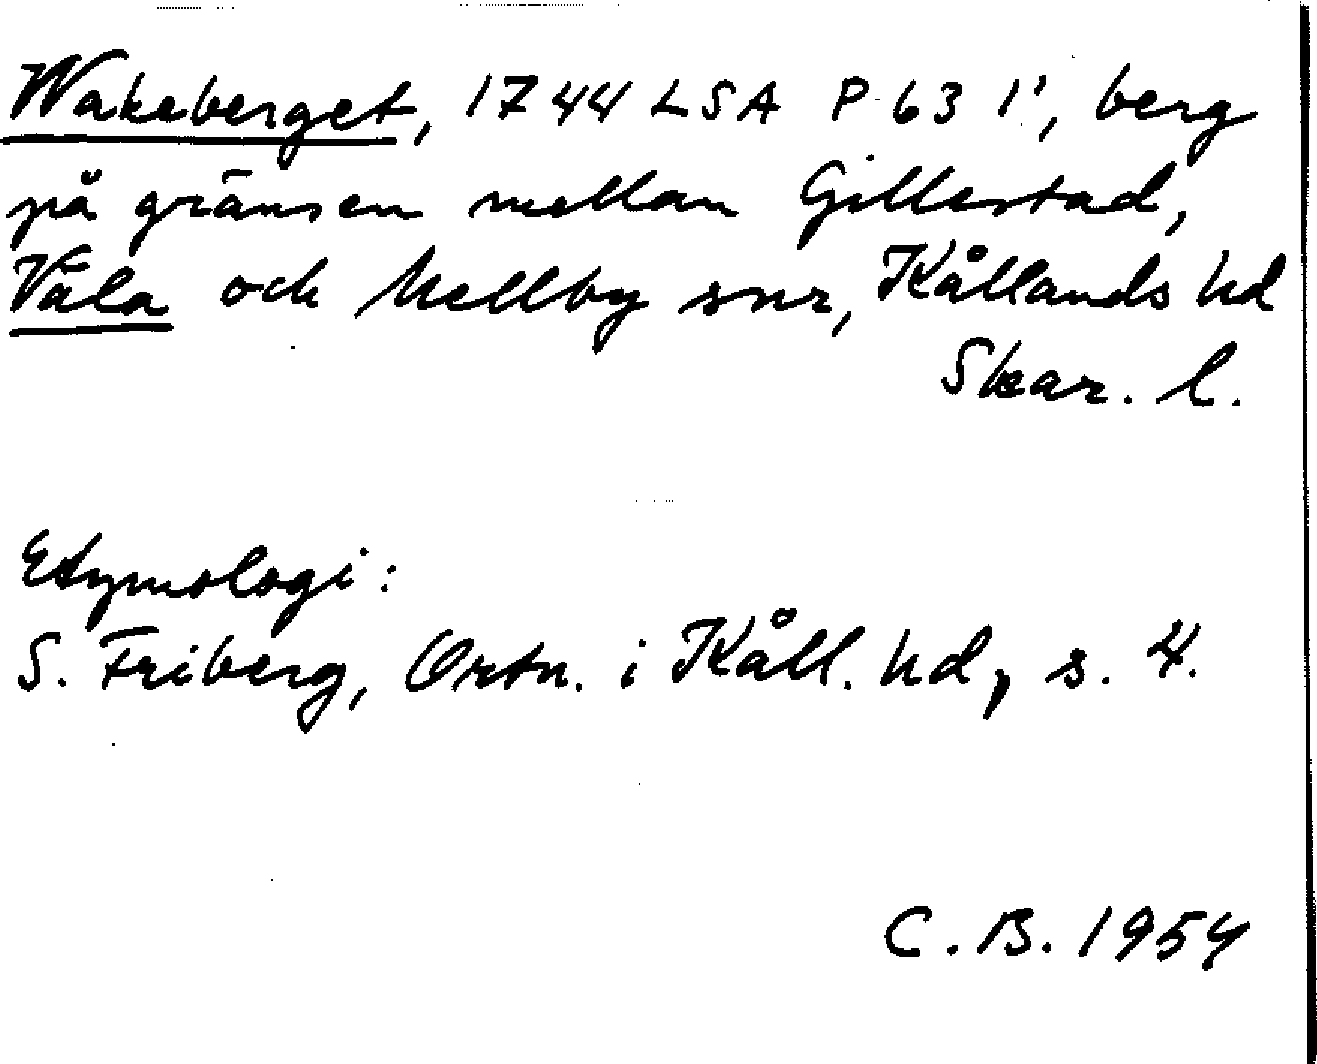 Wakeberget, 1744 LSA P 63 1¹, berg
på gränsen mellan Gillestad,
Väla och Mellby snr, Kållands hd
Skar. l.
Etymologi:
S. Friberg, Ortn. i Kåll. hd, s. 4.
C. B. 1954